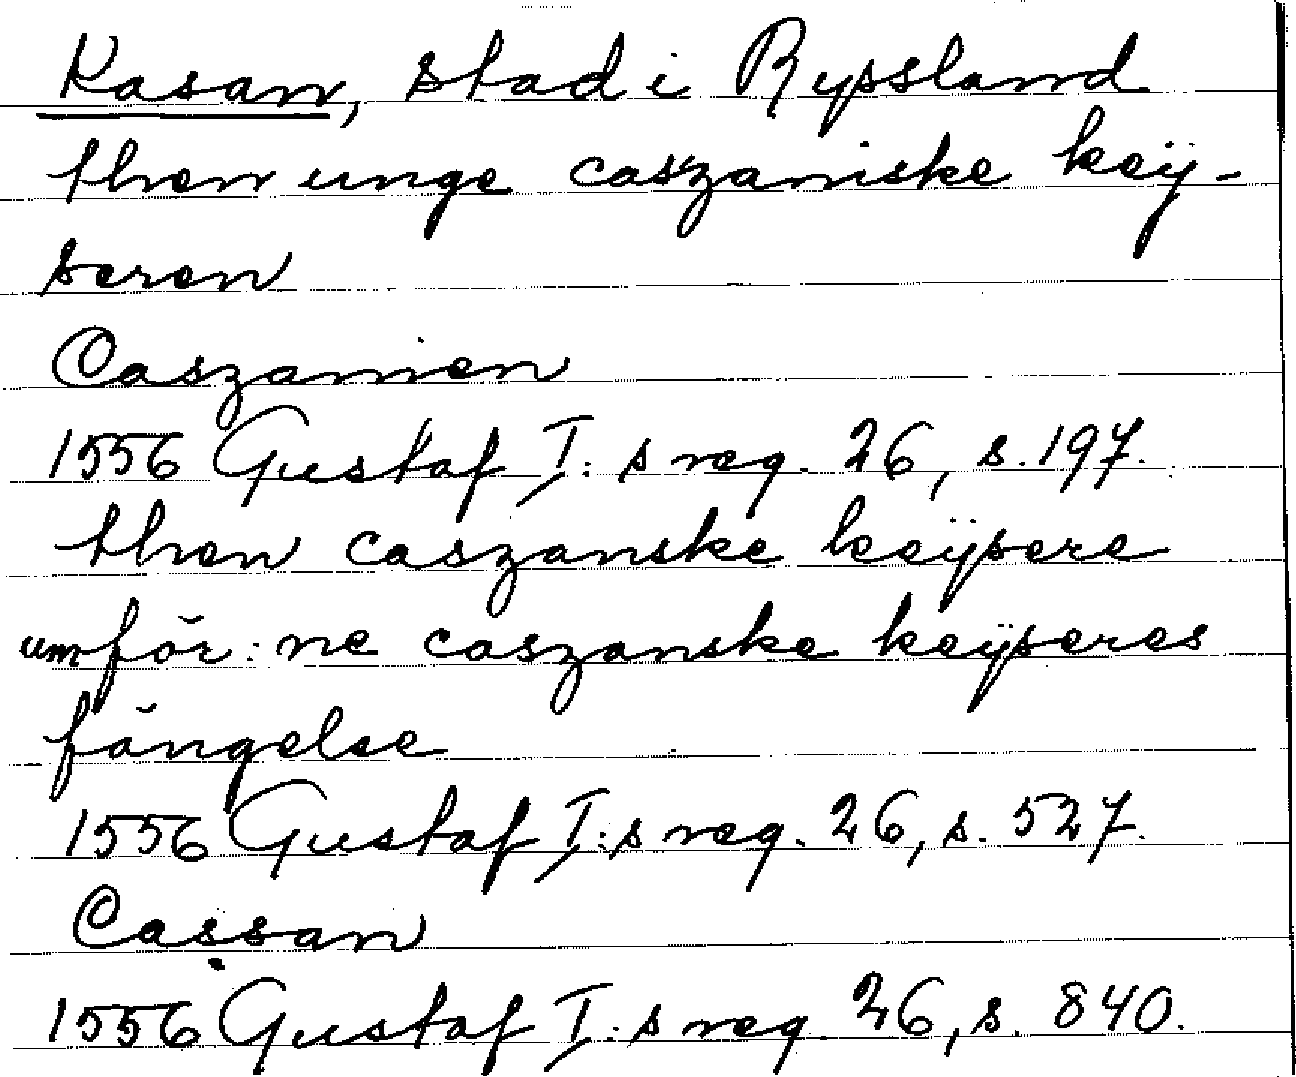 Kasan, stad i Ryssland
then unge caszaniske keÿ-
seren
Caszanien
1556 Gustaf I:s reg. 26, s. 197.
then caszanske keÿsere
um för:ne caszanske keÿseres
fängelse
1556 Gustaf I:s reg. 26, s. 527.
Cassan
1556 Gustaf I:s reg. 26, s. 840.